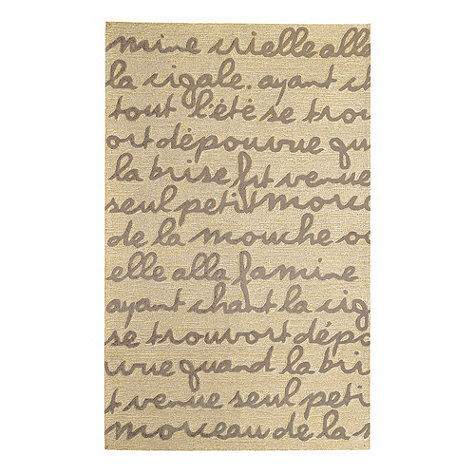 mine crielle alla
la cigale. ayant ch
tout l'été se trou
ort dépouvue qu
la brise fut venue
seul petit morce
de la mouche o
elle alla famine
ayant chant la cig
se trouvort dépo
vue quand la bri
t venue seul peti
morceau de la